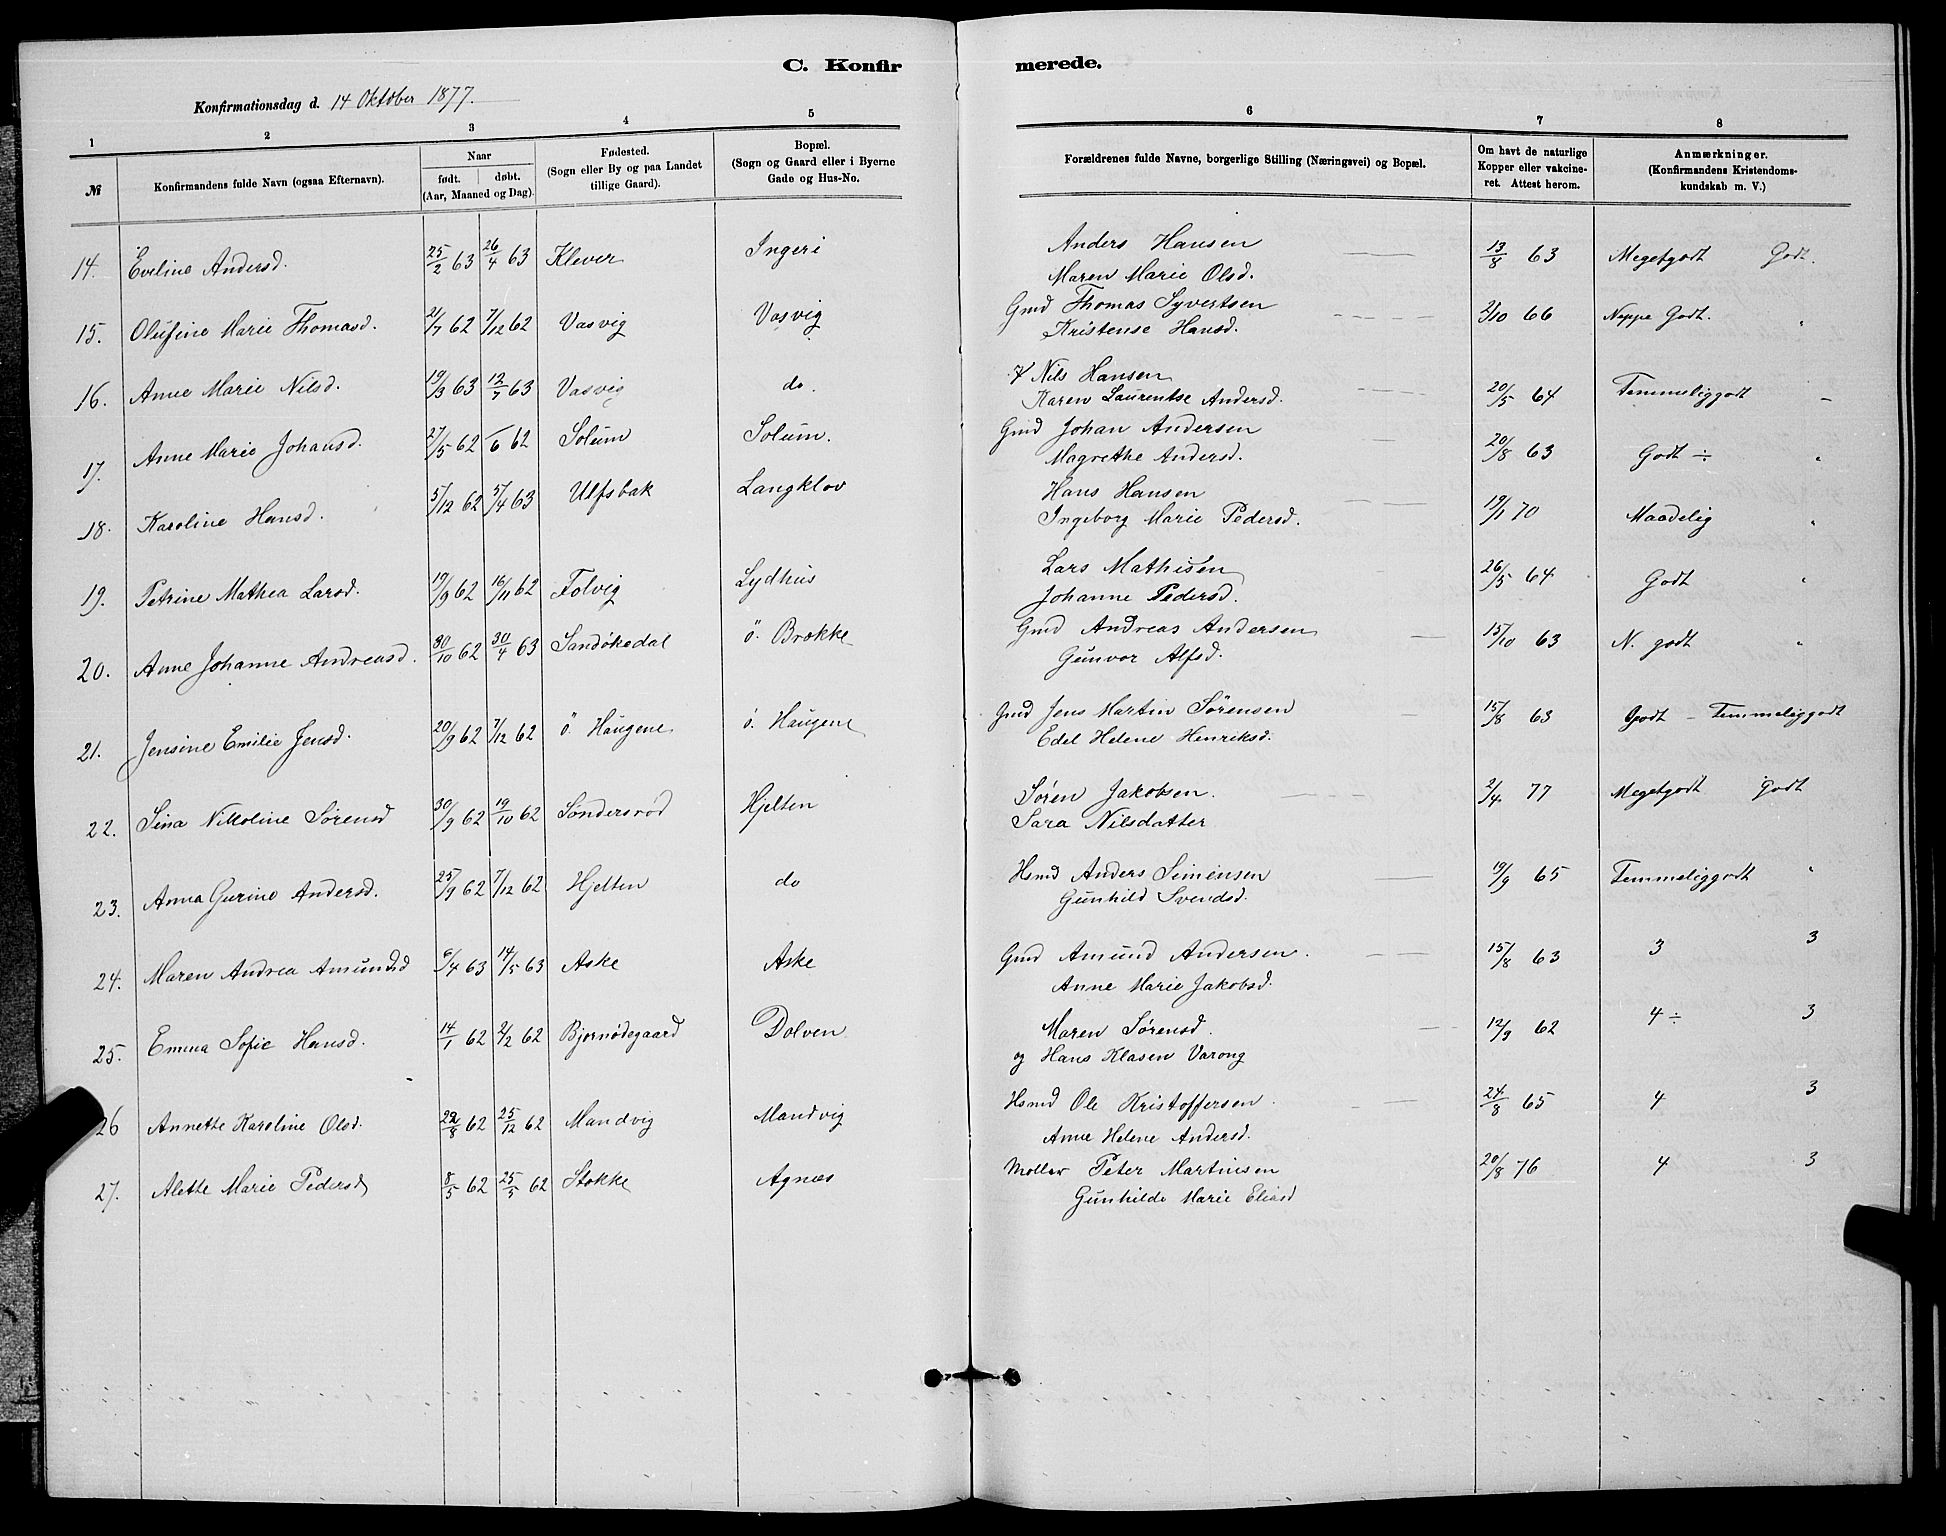 C. Konfirmerede.
Konfirmationsdag d. 14 Oktober 1877.
1 2 3 4 5 6 7 8
№
Konfirmandens fulde Navn (ogsaa Efternavn).
Naar
født. døbt.
(Aar, Maaned og Dag).
Fødested.
(Sogn eller By og paa Landet
tillige Gaard).
Bopæl.
(Sogn og Gaard eller i Byerne
Gade og Hus-No.
Forældrenes fulde Navne, borgerlige Stilling (Næringsvei) og Bopæl.
Om havt de naturlige
Kopper eller vakcine-
ret. Attest herom.
Anmærkninger.
(Konfirmandens Kristendoms-
kundskab m. V.)
14. Eveline Andersd. 25/2 63 26/4 63 Klever Ingeri Anders Hansen 13/8 63 Megetgodt Godt.
Maren Marie Olsd.
15. Olufine Marie Thomasd. 21/7 62 7/12 62 Vasvig Vasvig Gmd Thomas Syvertsen 3/10 66 Neppe Godt. "
Kristense Hansd.
16. Anne Marie Nilsd. 19/3 63 12/7 63 Vasvig do. Nils Hansen 20/5 64 Temmeliggodt –
Karen Laurentse Andersd.
17. Anne Marie Johansd. 27/5 62 –/6 62 Solum Solum. Gmd Johan Andersen 20/8 63 Godt ÷ "
Magrethe Andersd.
18. Karoline Hansd. 5/12 62 5/4 63 Ulfsbak Langklov Hans Hansen 19/1 70 Maadelig "
Ingeborg Marie Pedersd.
19. Petrine Mathea Larsd. 19/9 62 16/11 62 Folvig Lydhus Lars Mathisen 26/5 64 Godt "
Johanne Pedersd.
20. Anne Johanne Andreasd. 30/10 62 30/4 63 Sandökedal ö. Brække Gmd Andreas Andersen 15/10 63 N. godt "
Gunvor Alfsd.
21. Jensine Emilie Jensd. 20/9 62 7/12 62 ö Haugene ö. Haugene Gmd Jens Martin Sørensen 15/8 63 Godt – Temmeliggodt
Edel Helene Henriksd.
22. Sina Nikoline Sörensd 30/9 62 19/10 62 Søndersrød Hjelten Søren Jakobsen. 2/4 77 Megetgodt Godt
Sara Nilsdatter
23. Anna Gurine Andersd. 25/9 62 7/12 62 Hjelten do Hsmd Anders Simensen 19/9 65 Temmeliggodt "
Gunhild Svendsd.
24. Maren Andrea Amundsd 6/4 63 14/5 63 Aske Aske Gmd Amund Andersen. 15/8 63 3 3
Anne Marie Jakobsd.
25. Emma Sofie Hansd. 14/1 62 2/2 62 Bjornødegaard Dolven Maren Sørensd. 12/9 62 4 ÷ 3
og Hans Klasen Varong
26 Annette Karoline Olsd. 22/8 62 25/12 62 Mandvig Mandvig Hsmd Ole Kristoffersen. 24/8 65 4 3
Anne Helene Andersd.
27. Alette Marie Pedersd 8/5 62 25/5 62 Stokke Agnæs Møller Peter Martinsen 20/8 76 4 3
Gunhilde Marie Eliasd